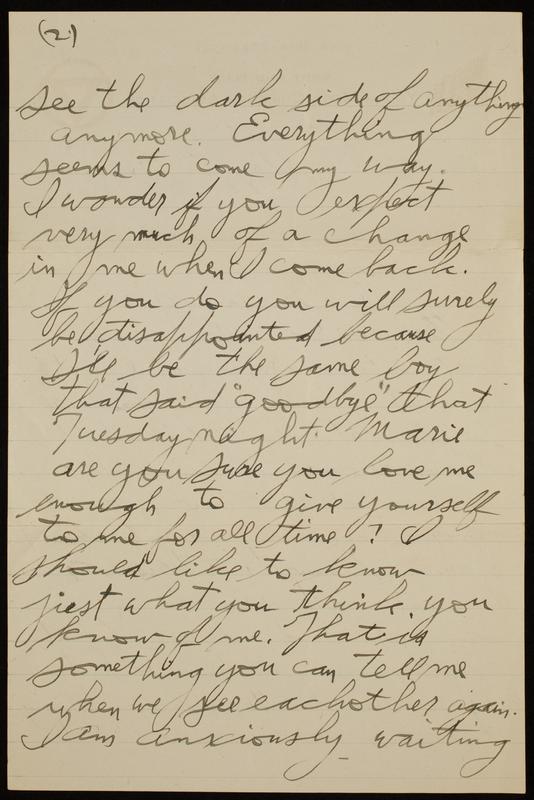 (2)
see the dark side of anything
anymore. Everything
seems to come my way.
I wonder if you expect
very much of a change
in me when I come back.
If you do you will surely
be disappointed because
I'll be the same boy
that said "goodbye" that
Tuesday night. Marie
are you sure you love me
enough to give yourself
to me for all time? I
should like to know
just what you think you
know of me. That is
something you can tell me
when we see eachother again.
I am anxiously waiting